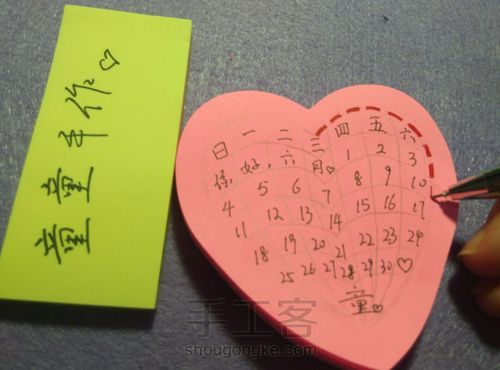 童童手作♡
日 一 二 三 四 五 六
你好，六月♡ 1 2 3
4 5 6 7 8 9 10
11 12 13 14 15 16 17
18 19 20 21 22 23 24
25 26 27 28 29 30 ♡
童♡
手工客
shougongke.com